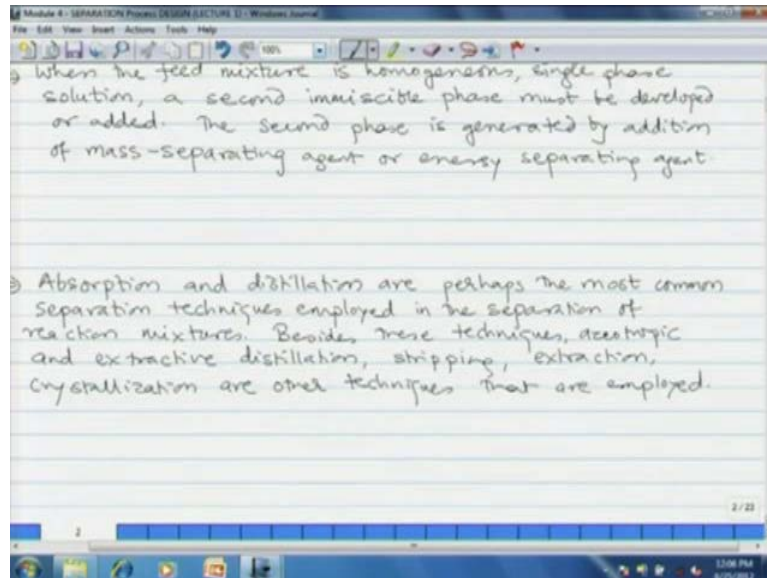 Module 4 - SEPARATION Process DESIGN (LECTURE 1) - Windows Journal
File Edit View Insert Actions Tools Help
100%
When the feed mixture is homogeneous, single phase
solution, a second immiscible phase must be developed
or added. The second phase is generated by addition
of mass-separating agent or energy separating agent
Absorption and distillation are perhaps the most common
separation techniques employed in the separation of
reaction mixtures. Besides these techniques, azeotropic
and extractive distillation, stripping, extraction,
crystallization are other techniques that are employed.
2/22
2
12:06 PM
6/25/2012